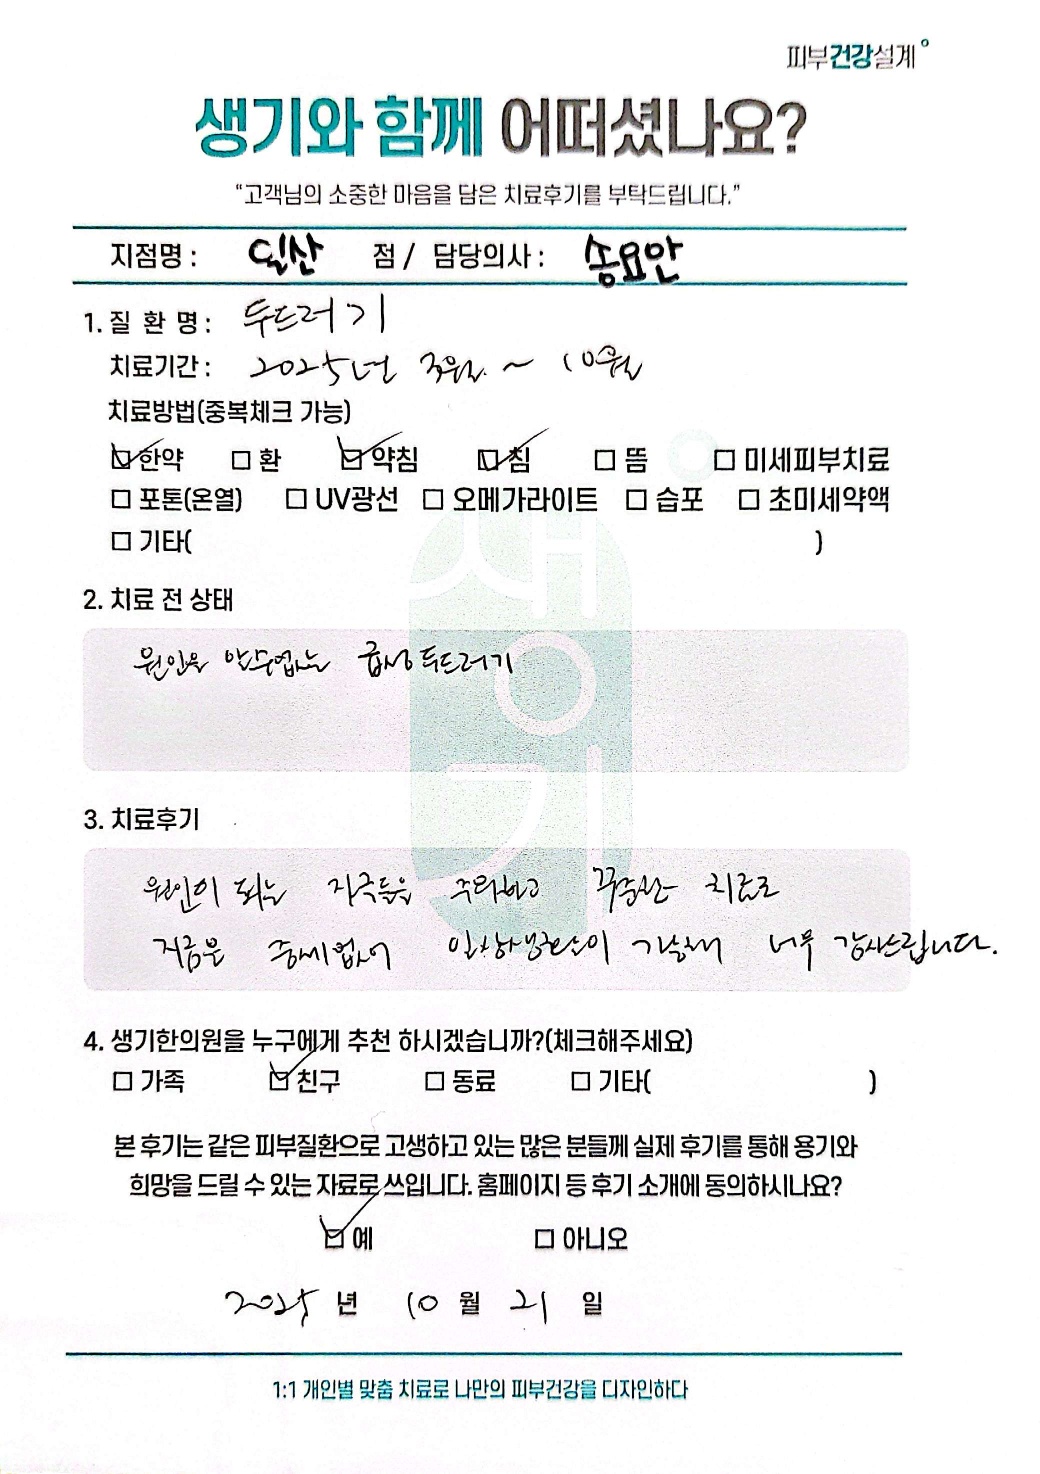 피부건강설계
생기와 함께 어떠셨나요?
“고객님의 소중한 마음을 담은 치료후기를 부탁드립니다.”
지점명 : 일산 점 / 담당의사 : 송요안
1. 질 환 명 : 두드러기
치료기간 : 2025년 3월 ~ 10월
치료방법(중복체크 가능)
☑ 한약 □ 환 ☑ 약침 ☑ 침 □ 뜸 □ 미세피부치료
□ 포톤(온열) □ UV광선 □ 오메가라이트 □ 습포 □ 초미세약액
□ 기타( )
2. 치료 전 상태
원인을 알수없는 급성두드러기
3. 치료후기
원인이 되는 자극들을 주의하고 꾸준한 치료로
지금은 증세없이 일상생활이 가능해 너무 감사드립니다.
4. 생기한의원을 누구에게 추천 하시겠습니까?(체크해주세요)
□ 가족 ☑ 친구 □ 동료 □ 기타( )
본 후기는 같은 피부질환으로 고생하고 있는 많은 분들께 실제 후기를 통해 용기와
희망을 드릴 수 있는 자료로 쓰입니다. 홈페이지 등 후기 소개에 동의하시나요?
☑ 예 □ 아니오
2025 년 10 월 21 일
1:1 개인별 맞춤 치료로 나만의 피부건강을 디자인하다
생기